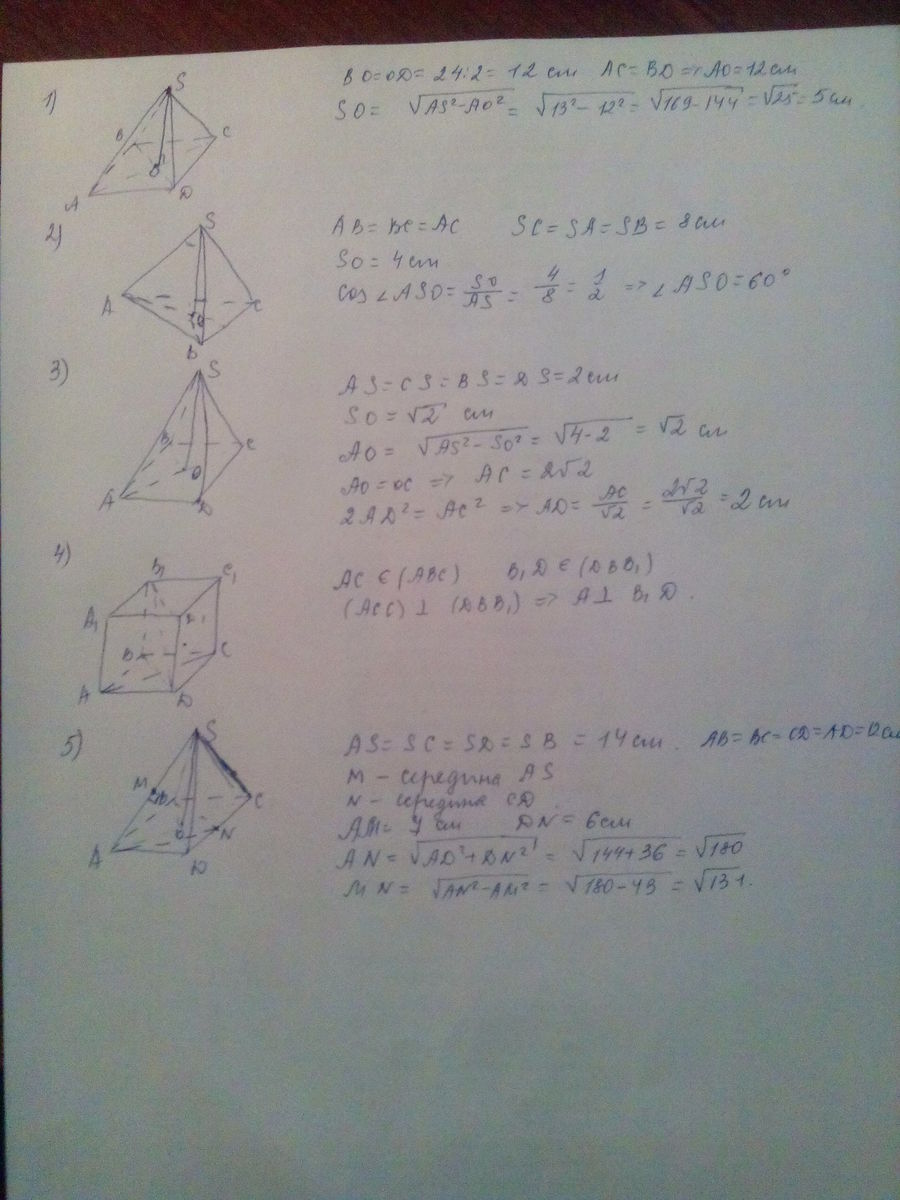 1)
BO=OD= 24:2= 12 см AC=BD => AO=12см
SO= √AS²-AO² = √13²-12² = √169-144 = √25 = 5см
S
B
C
O
A
D
2)
AB=BC=AC SC=SA=SB=8см
SO=4см
cos∠ASO= SO/AS = 4/8 = 1/2 => ∠ASO=60°
S
A
C
O
B
3)
AS=CS=BS=DS=2см
SO=√2 см
AO= √AS²-SO² = √4-2 = √2 см
AO=OC => AC=2√2
2AD²=AC² => AD= AC/√2 = 2√2/√2 = 2см
S
B
C
O
A
D
4)
AC∈(ABC) B₁D∈(DBB₁)
(ACC)⊥(DBB₁) => A⊥B₁D.
B₁
C₁
A₁
B
C
A
D
5)
AS=SC=SD=SB=14см. AB=BC=CD=AD=12см
M - середина AS
N - середина CD
AM= 7см DN=6см
AN= √AD²+DN² = √144+36 = √180
MN= √AN²-AM² = √180-49 = √131.
S
M
C
O
N
A
D